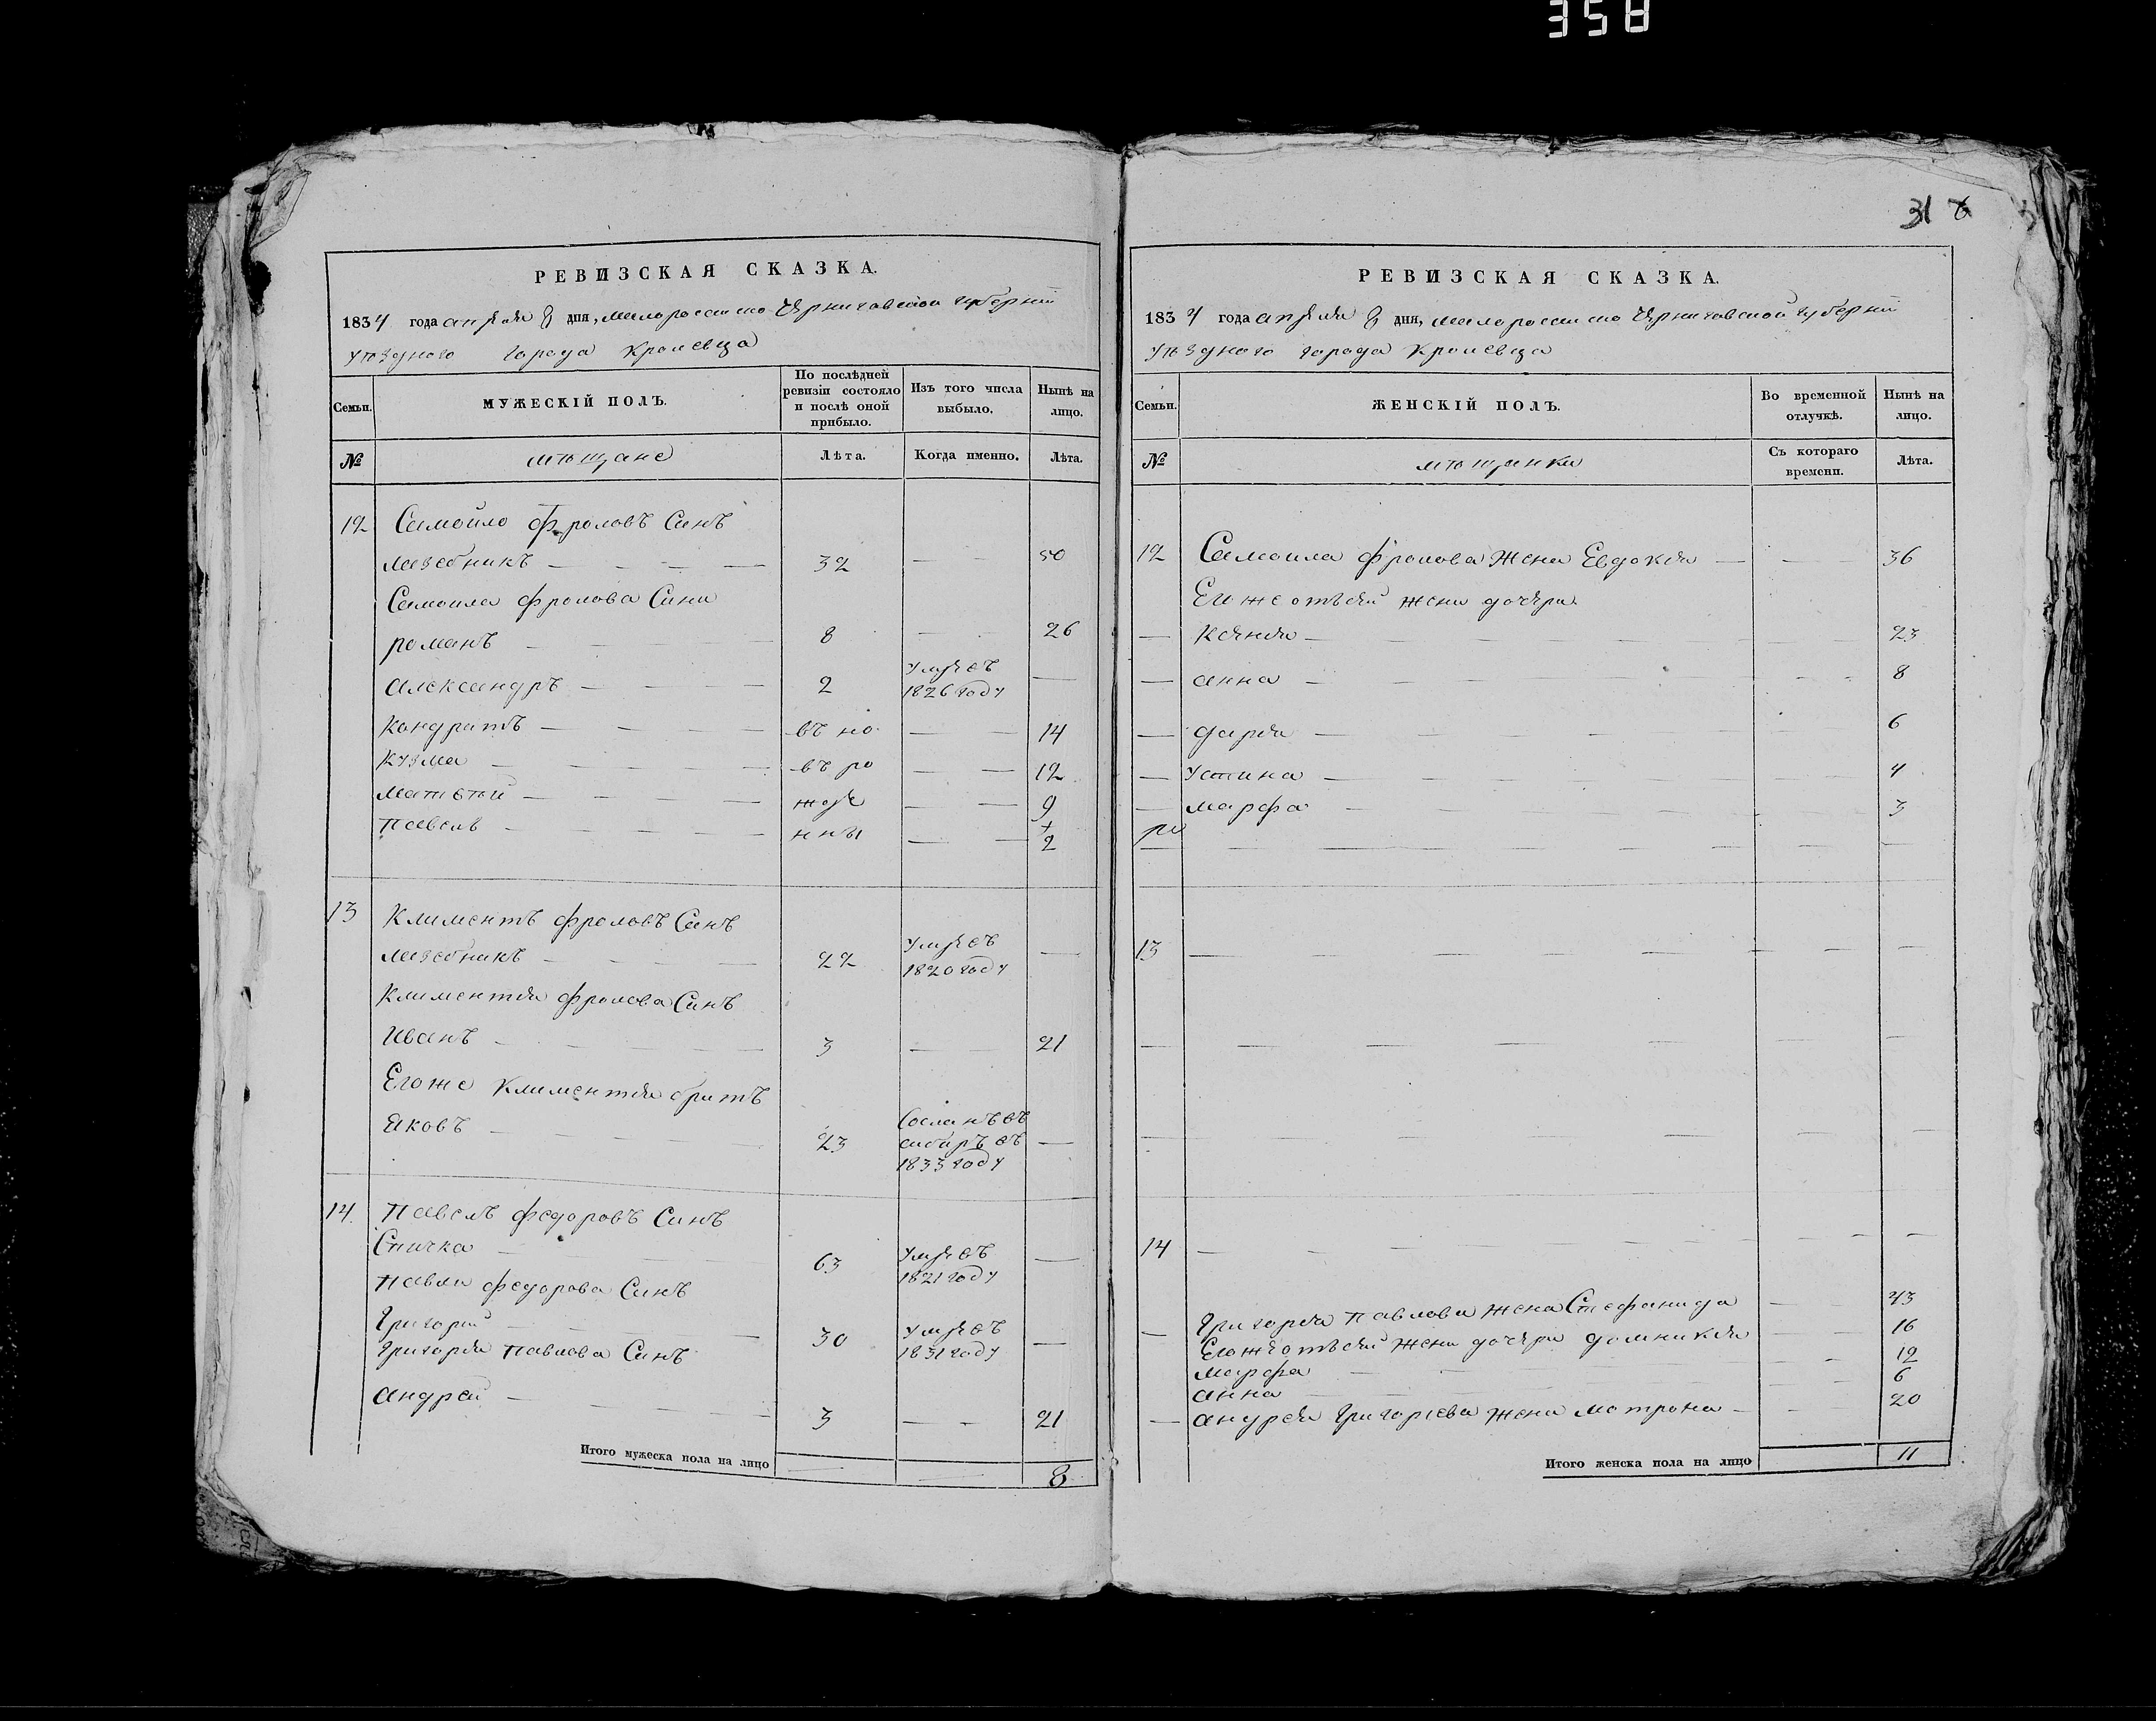 358
РЕВИЗСКАЯ СКАЗКА.
1834 года апреля 8 дня, малороссийско Черниговской губернии
уѣздного города Кролевца
Семьи.
МУЖЕСКІЙ ПОЛЪ.
По послѣдней ревизіи состояло и послѣ оной прибыло.
Изъ того числа выбыло.
Нынѣ на лицо.
№
мѣщане
Лѣта.
Когда именно.
Лѣта.
12 Самойло Фроловъ Синъ
лазебникъ 32 50
Самоила Фролова Сини
романъ 8 26
александръ 2 умре въ 1826 году
Кондратъ въ но 14
Кузма въ ро 12
матвѣй жде 9
павелъ нны 2
13 Климентъ Фроловъ Синъ
лазебникъ 22 умре въ 1820 году
Климентия Фролова Синъ
Иванъ 3 21
Его же Климентия братъ
Яковъ 23 Сосланъ въ сибиръ въ 1833 году
14. Павелъ Федоровъ Синъ
Спичка 63 умре въ 1821 году
Павла Федорова Синъ
Григорий 30 умре въ 1831 году
Григория Павлова Синъ
андрей 3 21
Итого мужеска пола на лицо 8
31
РЕВИЗСКАЯ СКАЗКА.
1834 года апреля 8 дня, малороссийско Черниговской губернии
уѣздного города Кролевца
Семьи.
ЖЕНСКІЙ ПОЛЪ.
Во временной отлучкѣ.
Нынѣ на лицо.
№
мѣщанки
Съ котораго времени.
Лѣта.
12 Самоила Фролова жена Евдокия 36
Его же отъ сей жени дочери
Ксения 23
анна 8
дария 6
устина 4
марфа 3
13
14
Григория Павлова жена Стефанида 43
Его же отъ сей жени дочери домникия 16
марфа 12
анна 6
андрея Григориева жена мотрона 20
Итого женска пола на лицо 11